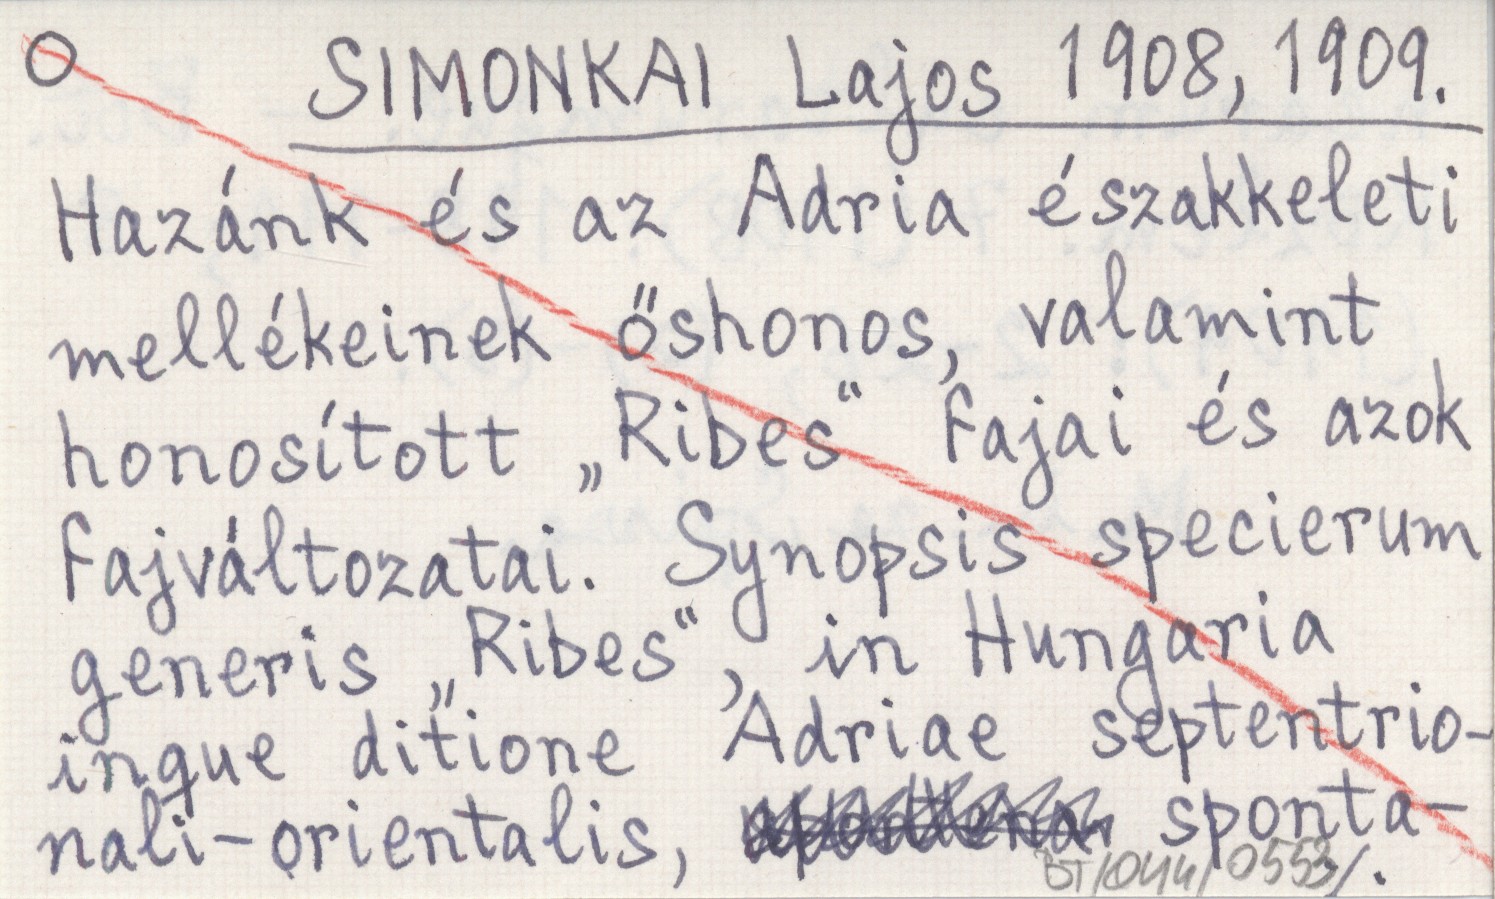 O SIMONKAI Lajos 1908, 1909.
Hazánk és az Adria északkeleti
mellékeinek őshonos, valamint
honosított „Ribes“ fajai és azok
fajváltozatai. Synopsis specierum
generis „Ribes“, in Hungaria
inque ditione Adriae septentrio-
nali-orientalis, sponta-
BT/044/0553/.